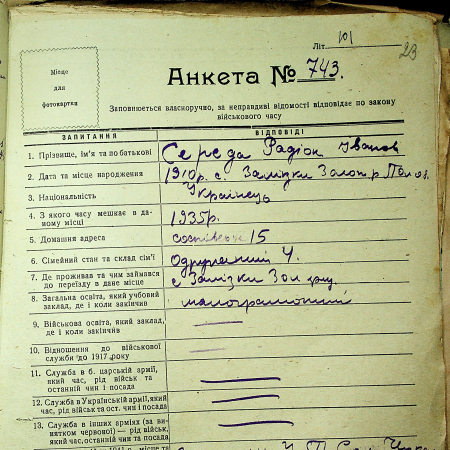 Літ. 101
23
Місце
для
фотокартки
Анкета № 743.
Заповнюється власноручно, за неправдиві відомості відповідає по закону
військового часу
ЗАПИТАННЯ ВІДПОВІДІ
1. Прізвище, ім'я та по батькові Середа Радіон Іванов
2. Дата та місце народження 1910р. с. Залізки Золот. р Полтов.
3. Національність Українець
4. З якого часу мешкає в да-
ному місці 1935р.
5. Домашня адреса 15
6. Сімейний стан та склад сім'ї Одружений 4.
7. Де проживав та чим займався
до переїзду в дане місце с Залізки Зол
8. Загальна освіта, який учбовий
заклад, де і коли закінчив малограмотний
9. Військова освіта, який заклад,
де і коли закінчив —
10. Відношення до військової
служби до 1917 року —
11. Служба в б. царській армії,
який час, рід військ та
останній чин і посада —
12. Служба в Українській армії, який
час, рід військ та ост. чин і посада —
13. Служба в інших арміях (за ви-
нятком червоної) — рід військ,
який час, останній чин та посада —